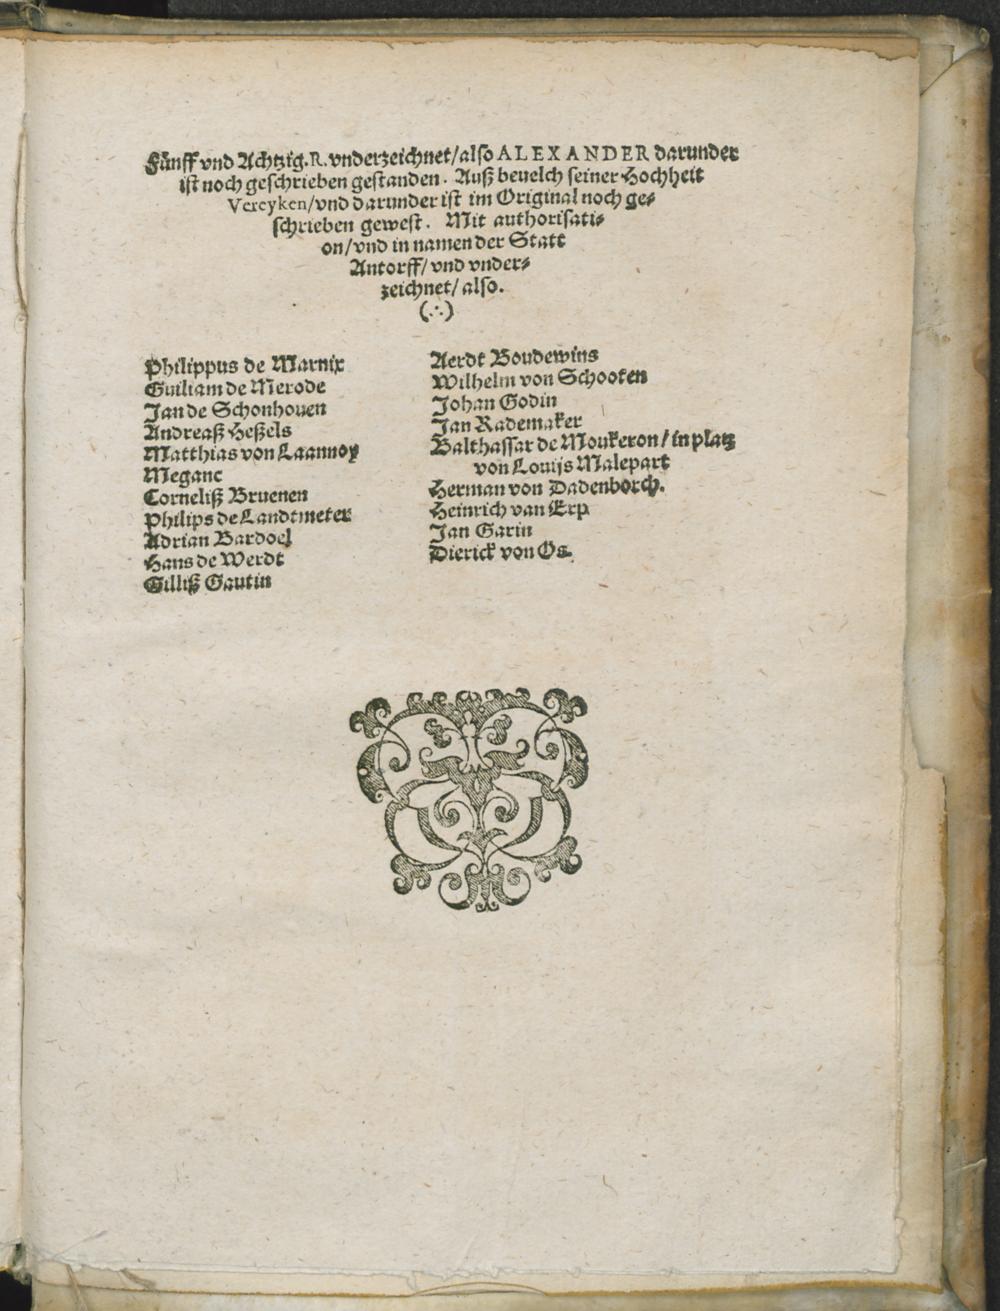 Fünff vnd Achtzig. R. vnderzeichnet/ also ALEXANDER darunder
ist noch geschrieben gestanden. Auß beuelch seiner Hochheit
Vereyken/ vnd darunder ist im Original noch ge-
schrieben gewest. Mit authorisati-
on/ vnd in namen der Statt
Antorff/ vnd vnder-
zeichnet/ also.
(∴)
Philippus de Marnix
Guiliam de Merode
Jan de Schonhouen
Andreaß Heßels
Matthias von Laannoy
Meganc
Corneliß Bruenen
Philips de Landtmeter
Adrian Bardoel
Hans de Werdt
Gilliß Gautin
Aerdt Boudewins
Wilhelm von Schooten
Johan Godin
Jan Rademaker
Balthassar de Moukeron/ in platz
von Louijs Malepart
Herman von Dadenborch.
Heinrich van Erp
Jan Garin
Dierick von Os.